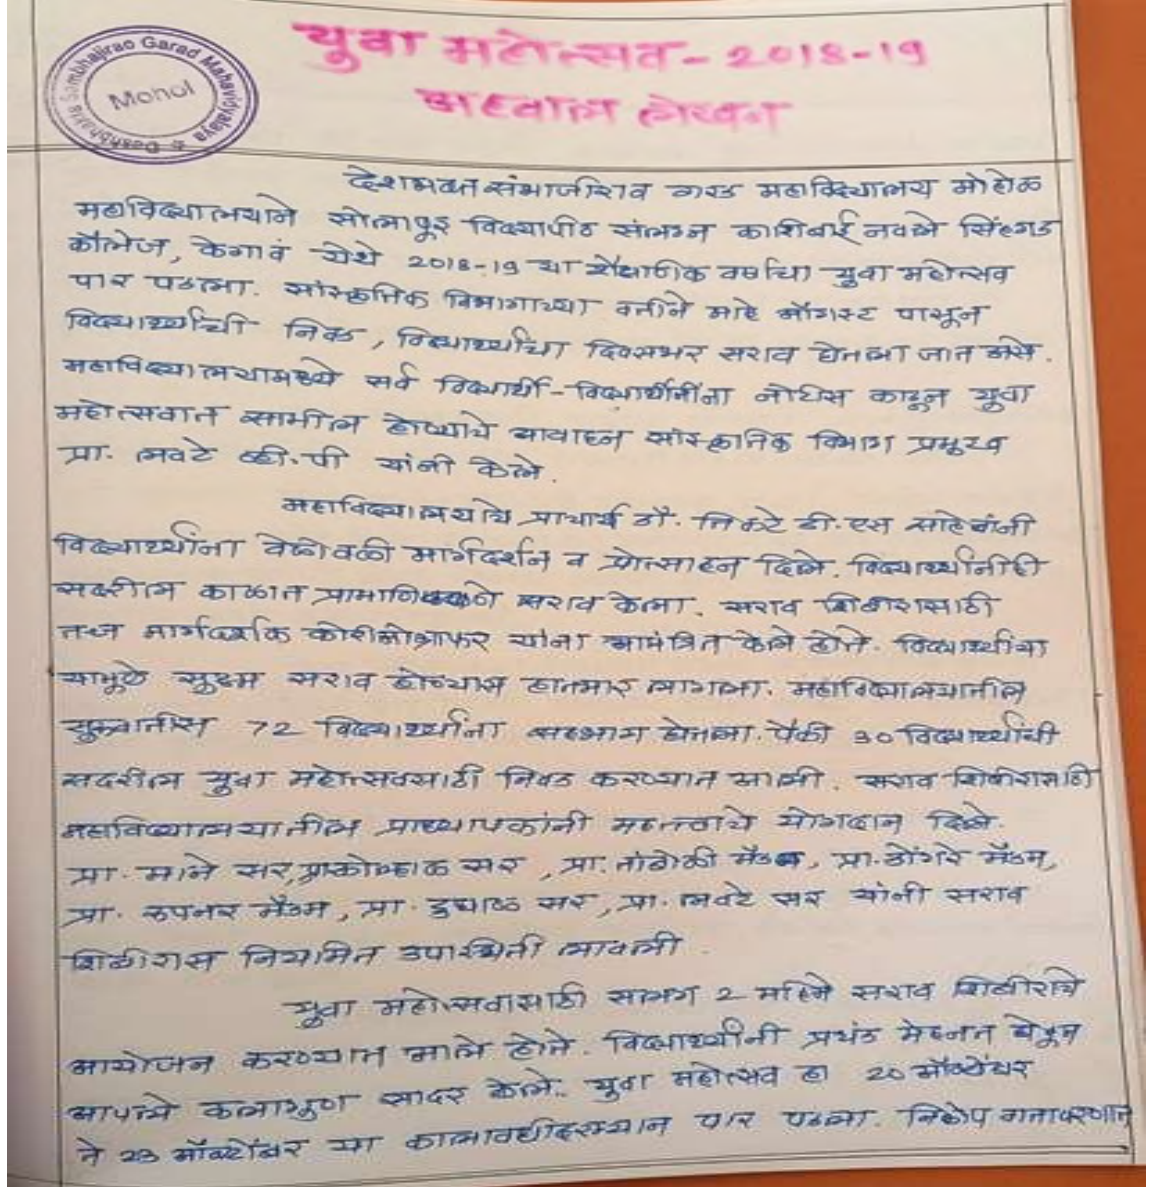 Deshbhakta Sambhajirao Garad Mahavidyalaya
Mohol
युवा महोत्सव - 2018-19
अहवाल लेखन
देशभक्त संभाजीराव गरड महाविद्यालय मोहोळ
महाविद्यालयाने सोलापूर विद्यापीठ संलग्न काशिबाई नवले सिंहगड
कॉलेज, केगावं येथे 2018-19 या शैक्षणिक वर्षाचा युवा महोत्सव
पार पडला. सांस्कृतिक विभागाच्या वतीने माहे ऑगस्ट पासून
विद्यार्थ्यांची निवड, विद्यार्थ्यांचा दिवसभर सराव घेतला जात असे.
महाविद्यालयामध्ये सर्व विद्यार्थी-विद्यार्थीनींना नोटीस काढून युवा
महोत्सवात सामील होण्याचे आवाहन सांस्कृतिक विभाग प्रमुख
प्रा. लवटे व्ही.पी यांनी केले.
महाविद्यालयाचे प्राचार्य डॉ. निकटे डी.एस साहेबांनी
विद्यार्थ्यांना वेळोवेळी मार्गदर्शन व प्रोत्साहन दिले. विद्यार्थ्यांनीही
सदरील काळात प्रामाणिकपणे सराव केला. सराव शिबीरासाठी
तज्ज्ञ मार्गदर्शक कोरीओग्राफर यांना आमंत्रित केले होते. विद्यार्थ्यांचा
यामुळे सुक्ष्म सराव होण्यास हातभार लागला. महाविद्यालयातील
सुरुवातीस 72 विद्यार्थ्यांनी सहभाग घेतला. पैकी 30 विद्यार्थ्यांची
सदरील युवा महोत्सवसाठी निवड करण्यात आली. सराव शिबीरासाठी
महाविद्यालयातील प्राध्यापकांनी महत्त्वाचे योगदान दिले.
प्रा. माने सर, प्रा.कोल्हाळ सर, प्रा. तांबोळी मॅडम, प्रा. डोंगरे मॅडम,
प्रा. रुपनर मॅडम, प्रा. दुधाळ सर, प्रा. लवटे सर यांनी सराव
शिबीरास नियमित उपस्थिती लावली.
युवा महोत्सवासाठी सलग 2 महिने सराव शिबीराचे
आयोजन करण्यात आले होते. विद्यार्थ्यांनी प्रचंड मेहनत घेवून
आपले कलागुण सादर केले. युवा महोत्सव हा 20 ऑक्टोंबर
ते 23 ऑक्टोंबर या कालावधीदरम्यान पार पडला. निकोप वातावरणात